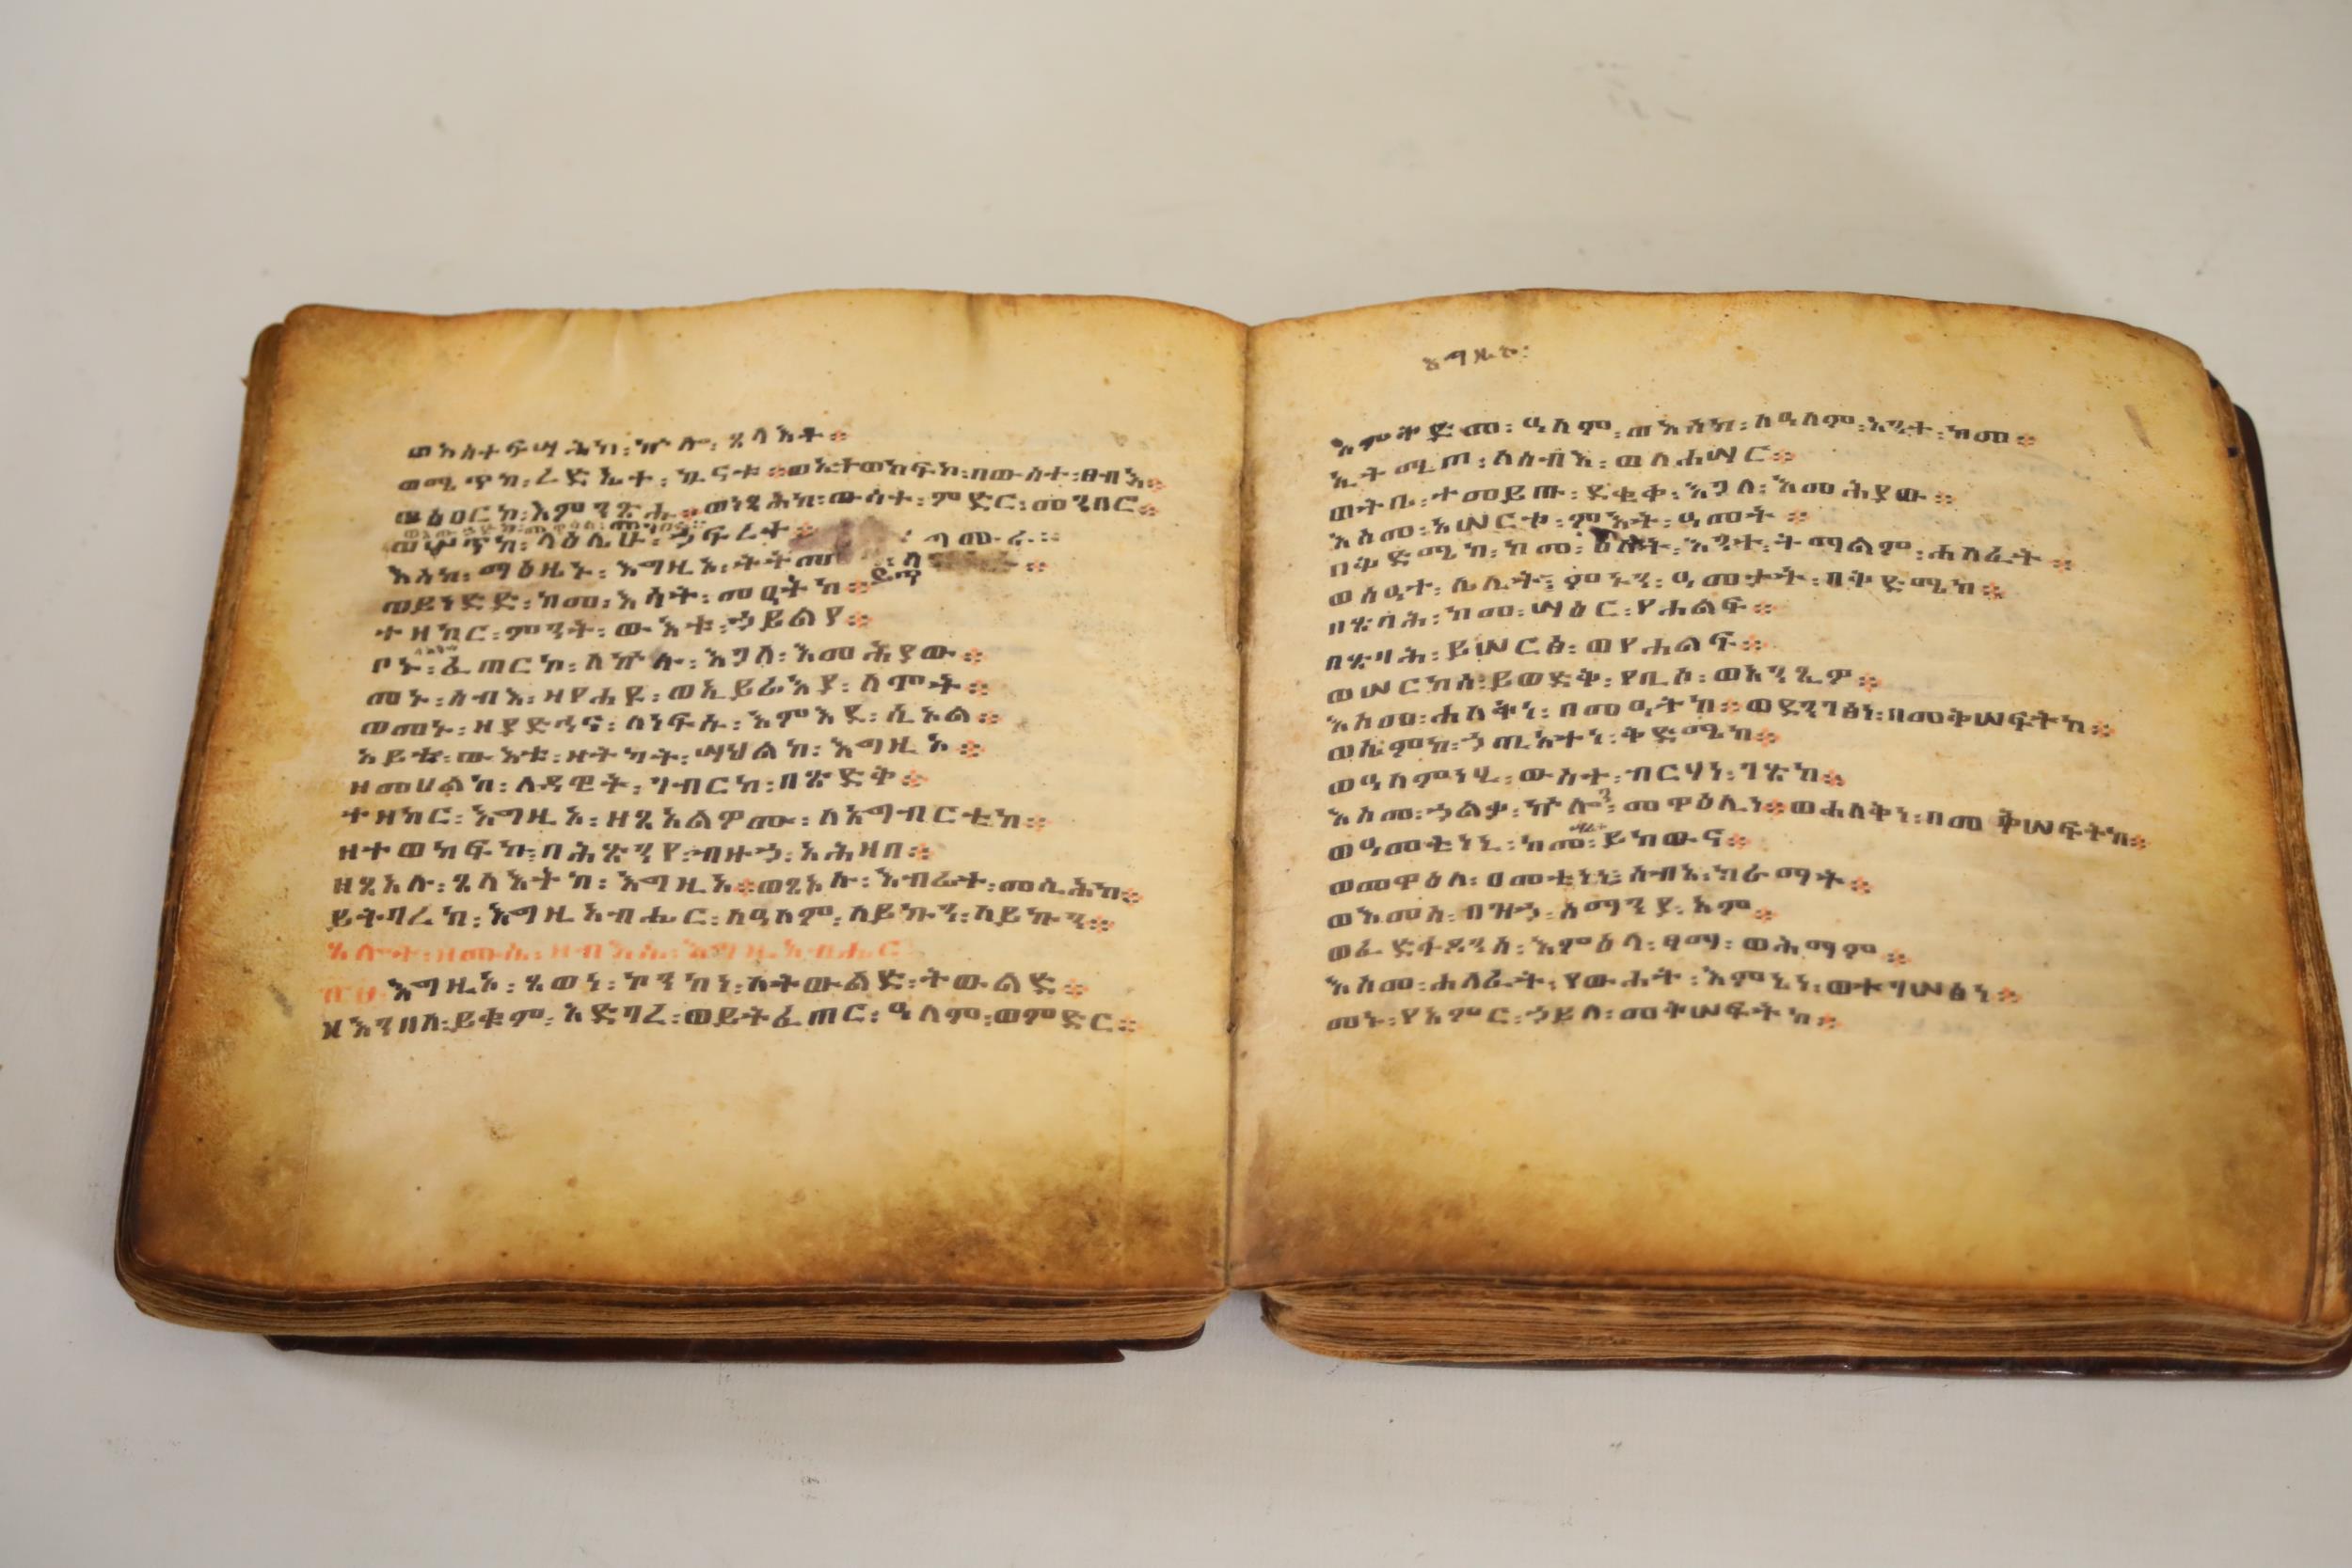 ወአስተፍሣሕከ፡ ኵሎ፡ ጸላእቱ።
ወሜጥከ፡ ረድኤተ፡ ኲናቱ። ወኢተወከፍኮ፡ በውስተ፡ ፀብእ።
ወፅዐርኮ፡ እምንጽሑ። ወነፃሕከ፡ ውስተ፡ ምድር፡ መንበሮ።
ወሦጥከ፡ ላዕሌሁ፡ ኃፍረተ።
እስከ፡ ማዕዜኑ፡ እግዚኦ፡
ወይነድድ፡ ከመ፡ እሳት፡ መዓትከ።
ተዘከር፡ ምንት፡ ውእቱ፡ ኃይልየ።
ቦኑ፡ ፈጠርኮ፡ ለኵሉ፡ እጓለ፡ እመሕያው።
መኑ፡ ሰብእ፡ ዘየሐዩ፡ ወኢይሬእያ፡ ለሞት።
ወመኑ፡ ዘያድኅና፡ ለነፍሱ፡ እምእደ፡ ሲኦል።
አይቴ፡ ውእቱ፡ ዘትካት፡ ሣህልከ፡ እግዚኦ።
ዘመሀልከ፡ ለዳዊት፡ ገብርከ፡ በጽድቅ።
ተዘከር፡ እግዚኦ፡ ዘጸአልዎሙ፡ ለአግብርቲከ።
ዘተወከፍኩ፡ በሕፅንየ፡ ብዙኃ፡ አሕዛበ።
ዘጸአሉ፡ ጸላእትከ፡ እግዚኦ። ወጸአሉ፡ እብሬተ፡ መሲሕከ።
ይትባረክ፡ እግዚአብሔር፡ ለዓለም፡ ለይኩን፡ ለይኩን።
ጸሎት፡ ዘሙሴ፡ ዘብእሴ፡ እግዚአብሔር
እግዚኦ፡ ጸወነ፡ ኮንከነ፡ በትውልድ፡ ትውልድ።
ዘእንበለ፡ ይቁም፡ አድባረ፡ ወይትፈጠር፡ ዓለም፡ ወምድር።
እምቅድመ፡ ዓለም፡ ወእስከ፡ ለዓለም፡ አንተ፡ ክመ።
ኢትሚጦ፡ ለሰብእ፡ ወለሐሣር።
ወትቤ፡ ተመይጡ፡ ደቂቀ፡ እጓለ፡ እመሕያው።
እስመ፡ አሠርቱ፡ ምእት፡ ዓመት።
በቅድሜከ፡ ከመ፡ ዕለት፡ እንተ፡ ትማልም፡ ሐለፈት።
ወሰዓተ፡ ሌሊት፡ ምኑን፡ ዓመታት፡ በቅድሜከ።
በጽባሕ፡ ከመ፡ ሣዕር፡ የሐልፍ።
በጽባሕ፡ ይሠርፅ፡ ወየሐልፍ።
ወሠርከሰ፡ ይወድቅ፡ የቢስ፡ ወእንዚም።
እስመ፡ ሐለቅነ፡ በመዓትከ። ወደንገፅነ፡ በመቅሠፍትከ።
ወሤምከ፡ ኃጢአተነ፡ ቅድሜከ።
ወዓለምነሂ፡ ውስተ፡ ብርሃነ፡ ገጽከ።
እስመ፡ ኃልቃ፡ ኵሎን፡ መዋዕሊነ። ወሐለቅነ፡ በመቅሠፍትከ።
ወዓመቲነኒ፡ ከመ፡ ይከውና።
ወመዋዕለ፡ ዐመቲነኒ፡ ሰብአ፡ ክራማት።
ወእመሰ፡ በዝኃ፡ ሰማንያ፡ አም።
ወፈድፋዶንሰ፡ እምዕላ፡ ፃማ፡ ወሕማም።
እስመ፡ ሐለፈት፡ የውሐት፡ እምኔነ። ወተገሠፅነ።
መኑ፡ የአምር፡ ኃይለ፡ መቅሠፍትከ።